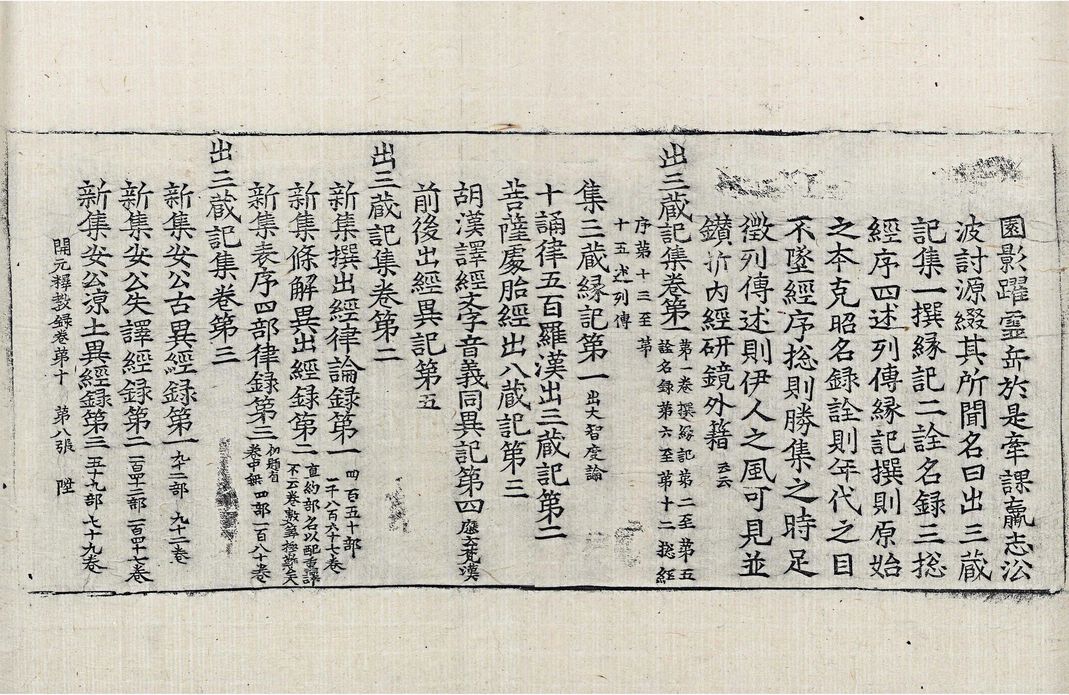 園影躍靈岳於是牽課羸志㳂
波討源綴其所聞名曰出三蔵
記集一撰縁記二詮名録三捴
經序四述列傳縁記撰則原始
之本克昭名録詮則年代之目
不墜經序捴則勝集之時足
徴列傳述則伊人之風可見並
鑚折内經研鏡外籍 云云
出三蔵記集卷第一 第一卷撰縁記第二至第五
詮名録第六至第十二捴經
序第十三至第
十五述列傳
集三蔵縁記第一 出大智度論
十誦律五百羅漢出三蔵記第二
菩薩處胎經出八蔵記第三
胡漢譯經文字音義同異記第四 應云梵漢
前後出經異記第五
出三蔵記集卷第二
新集撰出經律論録第一 四百五十部
一千八百六十七卷
新集條解異出經録第二 直約部名以配重譯
不云卷數
新集表序四部律録第三 四部一百八十卷
出三蔵記集卷第三
新集安公古異經録第一 九十二部 九十二卷
新集安公失譯經録第二 一百四十二部 一百四十七卷
新集安公涼土異經録第三 五十九部 七十九卷
開元釋教録卷第十 第八張 陞